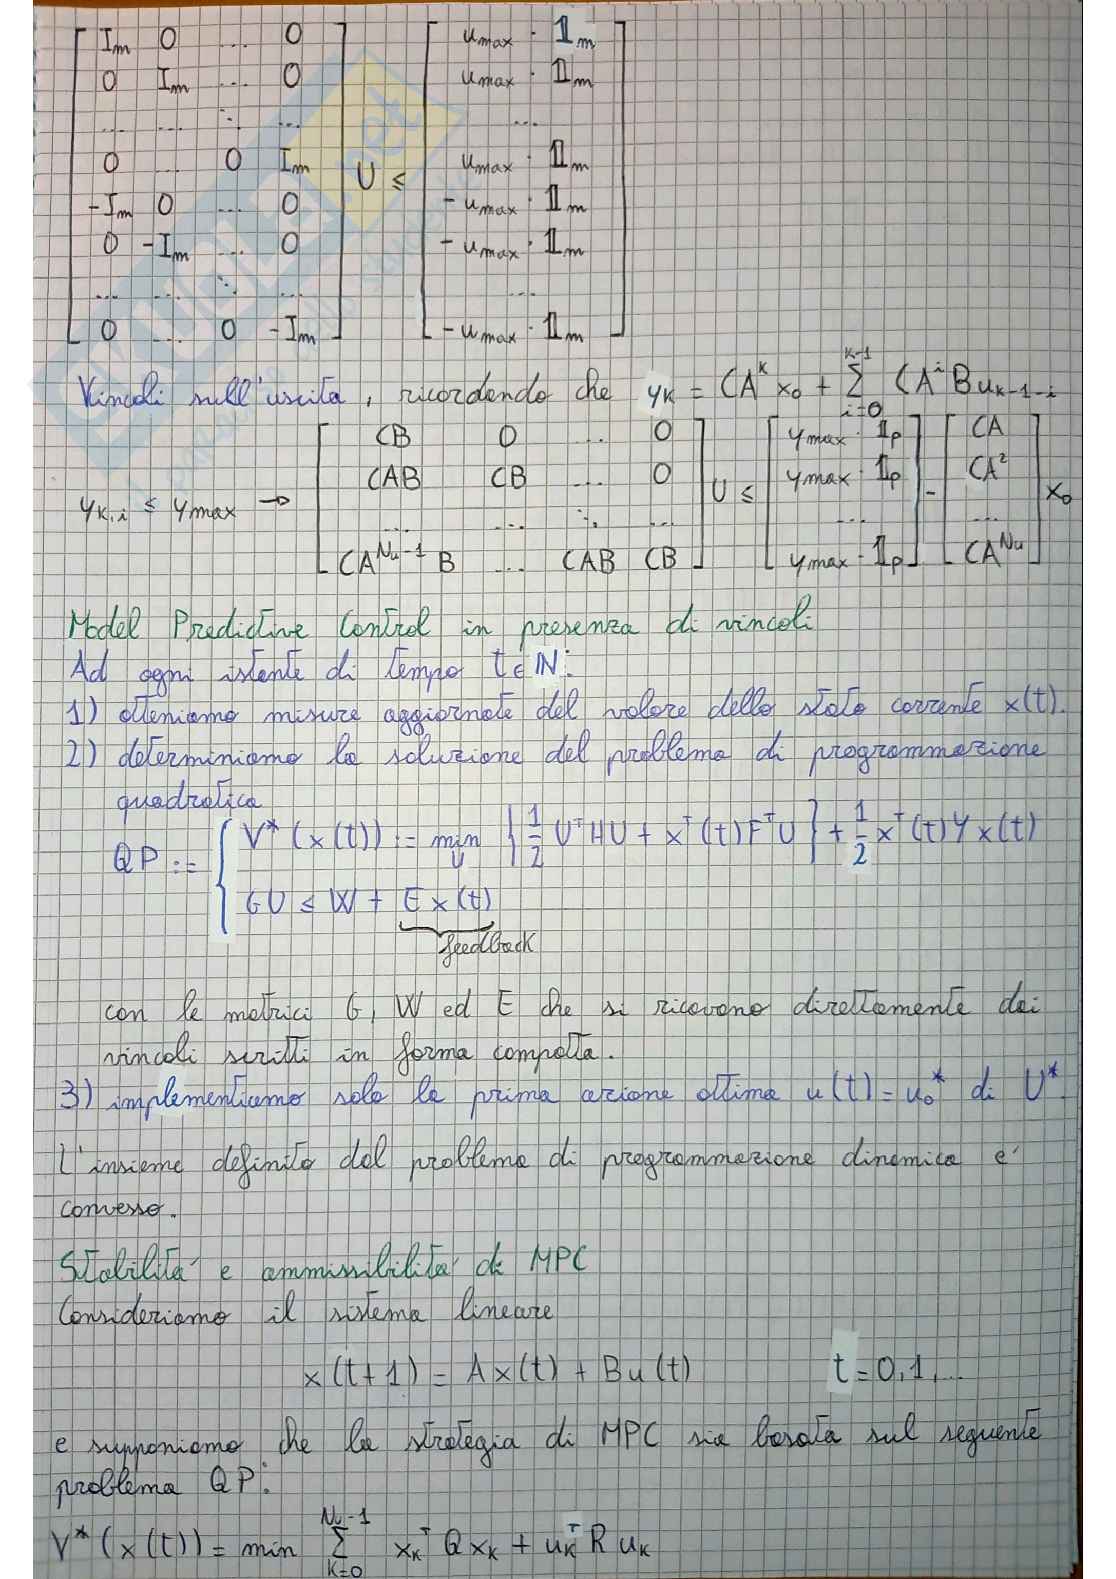 [ Im 0 ... 0 ] [ umax · 𝟙m ]
0 Im ... 0 umax · 𝟙m
... ... ⋱ ... ...
0 ... 0 Im U ≤ umax · 𝟙m
-Im 0 ... 0 - umax · 𝟙m
0 -Im ... 0 - umax · 𝟙m
... ... ⋱ ... ...
0 ... 0 -Im - umax · 𝟙m
Vincoli sull'uscita, ricordando che yk = CA^k x0 + Σ_{i=0}^{k-1} CA^i B u_{k-1-i}
CB 0 ... 0 ymax · 𝟙p CA
CAB CB ... 0 ymax · 𝟙p CA²
yk,i ≤ ymax → ... ... ⋱ ... U ≤ ... - ... x0
CA^{Nu-1} B ... CAB CB ymax · 𝟙p CA^{Nu}
Model Predictive Control in presenza di vincoli
Ad ogni istante di tempo t ∈ ℕ:
1) otteniamo misure aggiornate del valore dello stato corrente x(t).
2) determiniamo la soluzione del problema di programmazione
quadratica
QP := { V*(x(t)) := min_U { 1/2 U^T H U + x^T(t) F^T U } + 1/2 x^T(t) Y x(t)
GU ≤ W + E x(t)
feedback
con le matrici G, W ed E che si ricavano direttamente dai
vincoli scritti in forma compatta.
3) implementiamo solo la prima azione ottima u(t) = u0* di U*.
L'insieme definito dal problema di programmazione dinamica e'
convesso.
Stabilita' e ammissibilita' di MPC
Consideriamo il sistema lineare
x(t+1) = Ax(t) + Bu(t) t = 0,1,...
e supponiamo che la strategia di MPC sia basata sul seguente
problema QP:
V*(x(t)) = min Σ_{k=0}^{Nu-1} xk^T Q xk + uk^T R uk